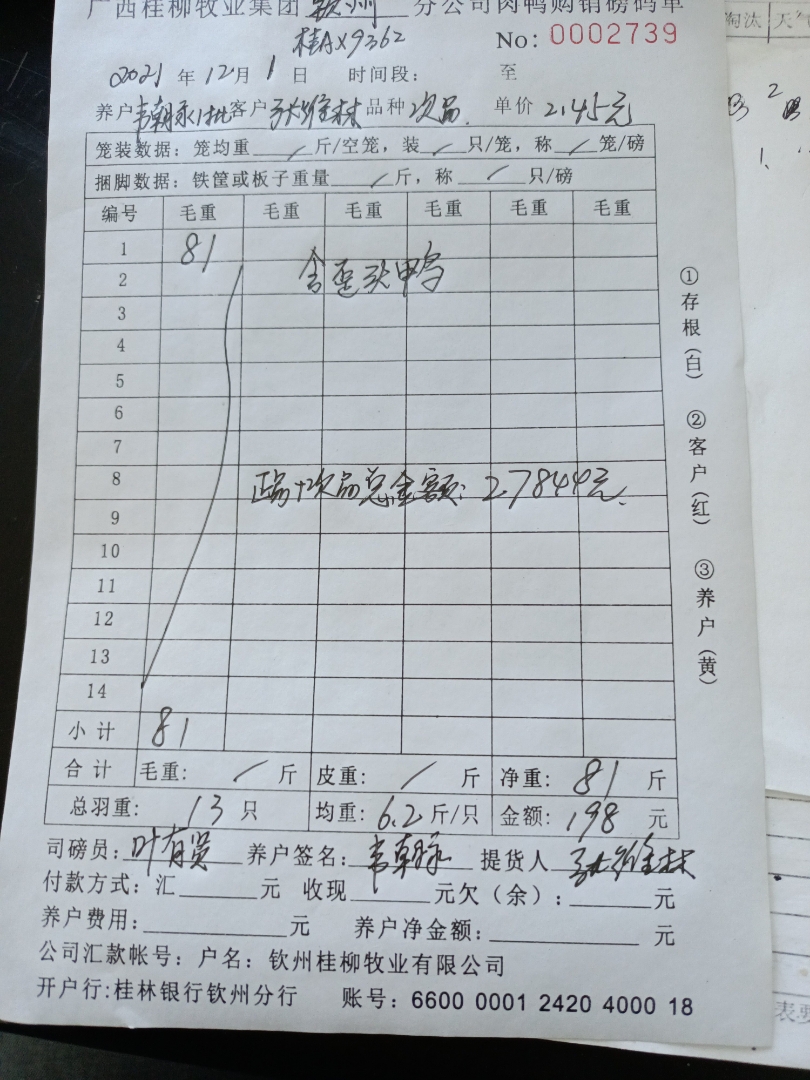 广西桂柳牧业集团 钦州 分公司肉鸭购销磅码单
桂AX9362
No: 0002739
2021 年 12 月 1 日 时间段: 至
养户 韦朝永1批 客户 张维林 品种 次品. 单价 2.45元
笼装数据: 笼均重 / 斤/空笼, 装 / 只/笼, 称 / 笼/磅
捆脚数据: 铁筐或板子重量 / 斤, 称 / 只/磅
编号 毛重 毛重 毛重 毛重 毛重 毛重
1 81
2 含歪头鸭
3
4
5
6
7
8 正品+次品总金额: 27844元.
9
10
11
12
13
14
小计 81
合计 毛重: / 斤 皮重: / 斤 净重: 81 斤
总羽重: 13 只 均重: 6.2 斤/只 金额: 198 元
司磅员: 叶有贤 养户签名: 韦朝永 提货人 张维林
付款方式: 汇 元 收现 元 欠(余): 元
养户费用: 元 养户净金额: 元
公司汇款帐号: 户名: 钦州桂柳牧业有限公司
开户行:桂林银行钦州分行 账号: 6600 0001 2420 4000 18
①存根(白) ②客户(红) ③养户(黄)
淘汰 天